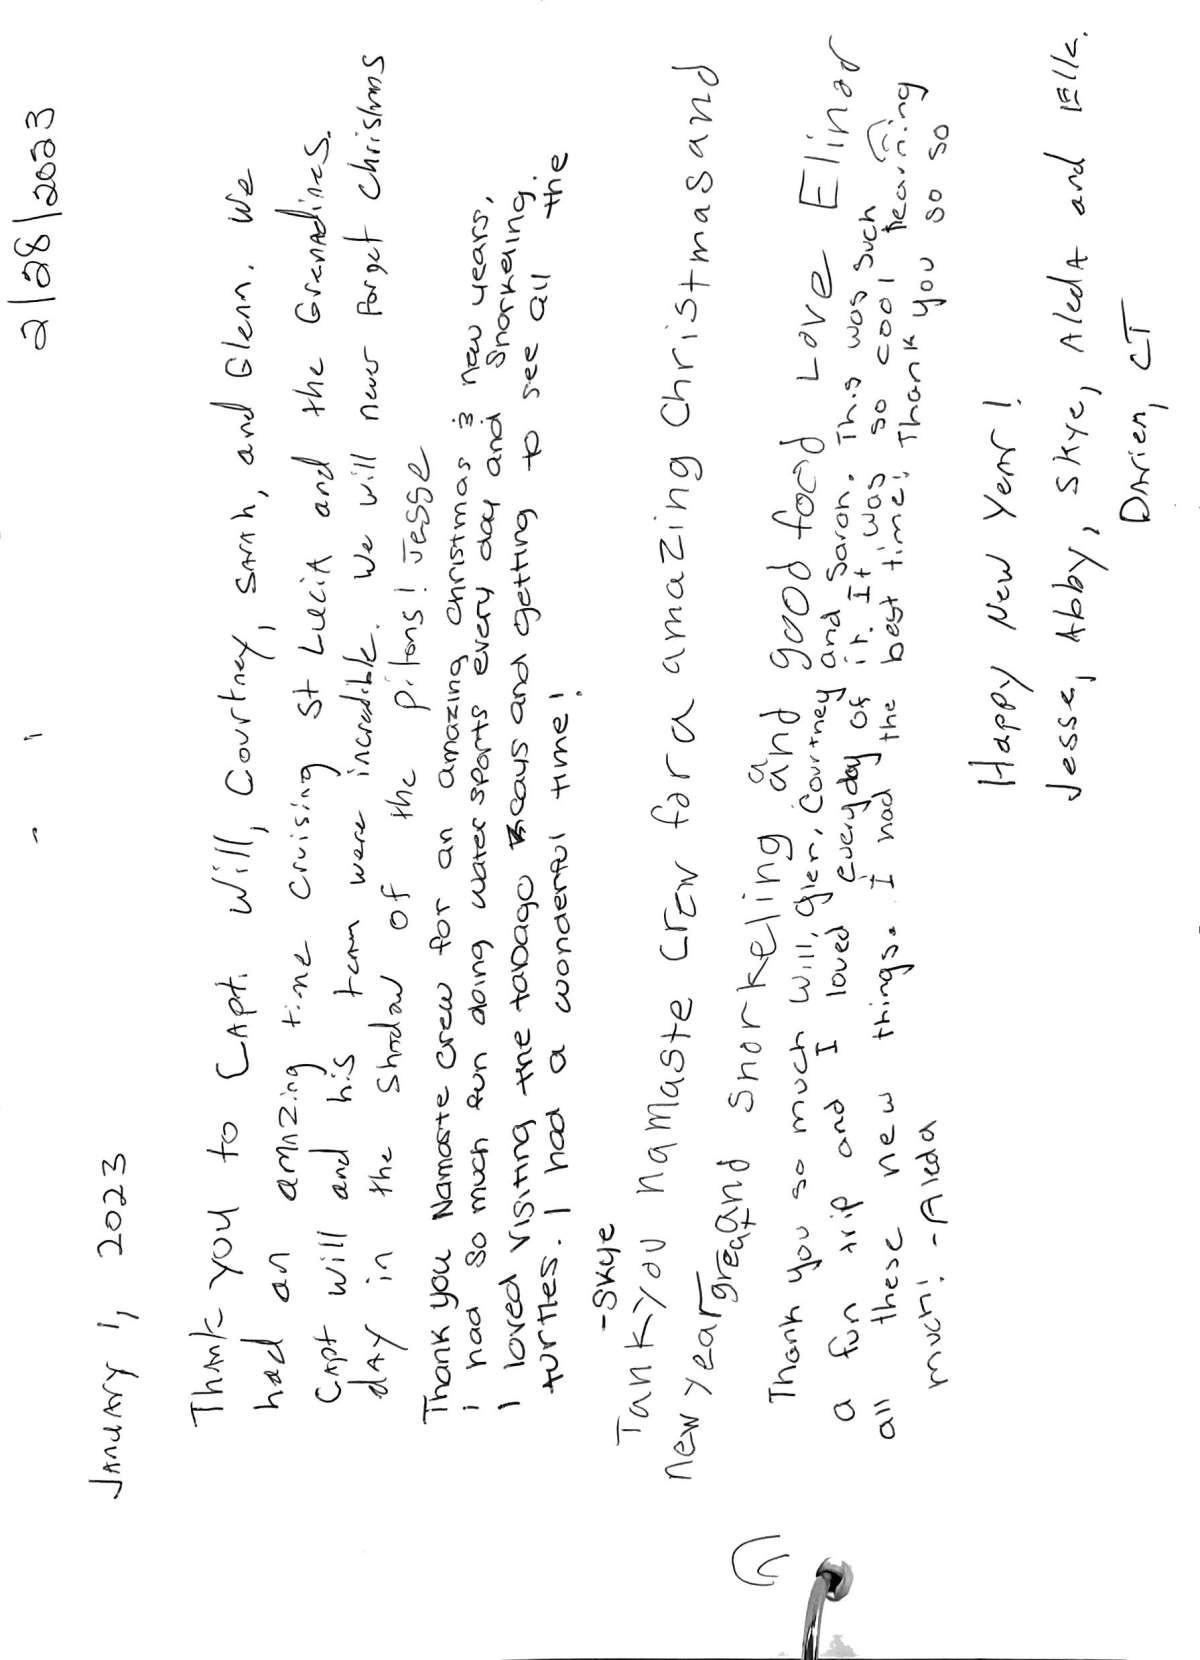 2/28/2023
January 1, 2023
Thank you to Capt. Will, Courtney, Sarah, and Glenn. We
had an amazing time cruising St Lucia and the Grenadines.
Capt Will and his team were incredible. We will never forget Christmas
day in the shadow of the pitons! Jesse
Thank you Namaste crew for an amazing christmas & new years,
i had so much fun doing water sports every day and snorkeling.
I loved visiting the tobago cays and getting to see all the
turtles. I had a wonderful time!
-Skye
Tank you namaste crew for a amazing christmas and
new year and snorkeling and good food Love Elinor
great a
Thank you so much will, glen, courtney and Saron. This was such
a fun trip and I loved everyday of it. It was so cool learning
all these new things. I had the best time! Thank you so so
much! -Aleda
Happy New Year!
Jesse, Abby, Skye, Aleda and Ella.
Darien, CT